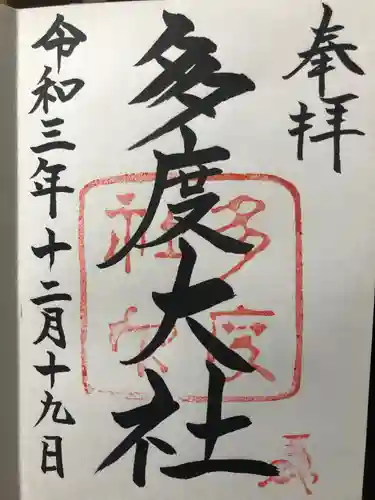 奉拝
多度大社
多度大社
令和三年十二月十九日